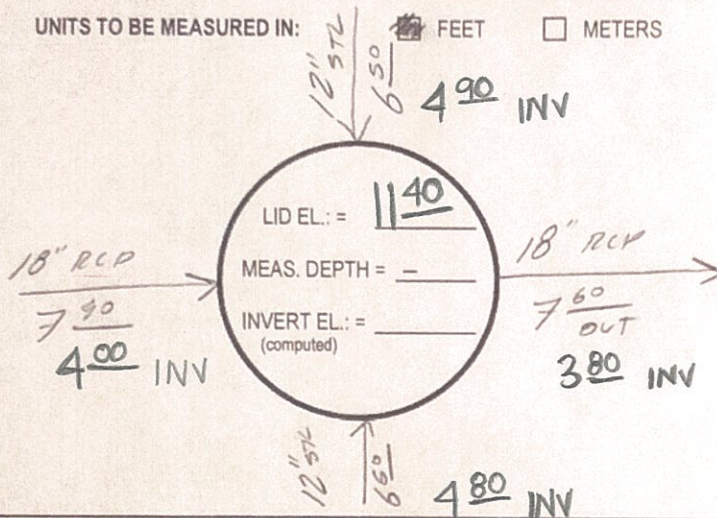 UNITS TO BE MEASURED IN: FEET METERS
12" STL
6 50
4 90 INV
LID EL.: = 11 40
MEAS. DEPTH = –
INVERT EL.: =
(computed)
18" RCP
7 40
4 00 INV
18" RCP
7 60
OUT
3 80 INV
12" STL
6 60
4 80 INV